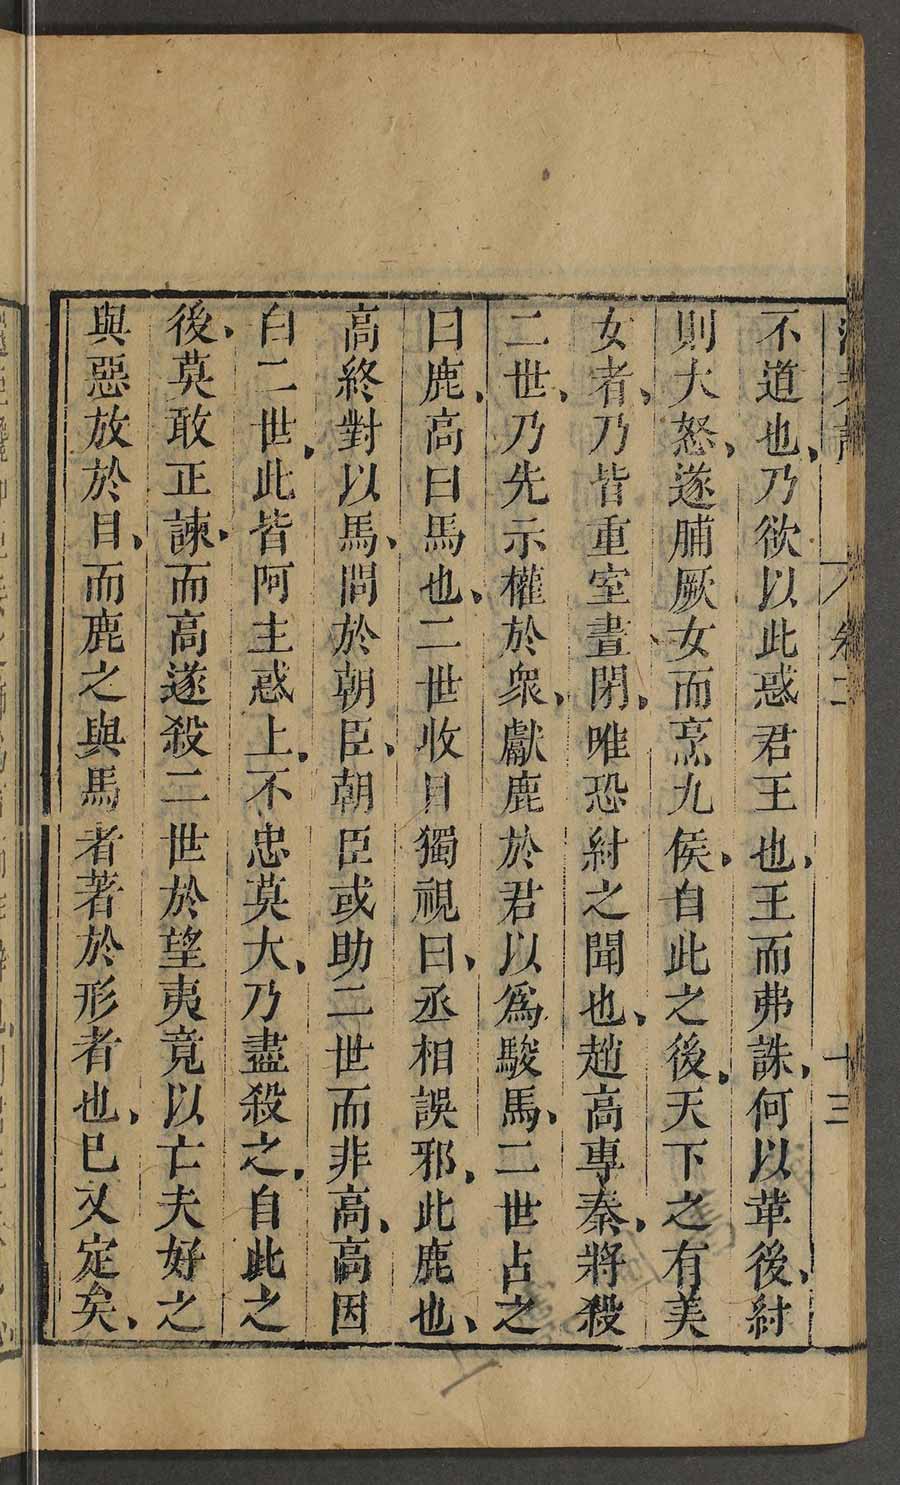 不道也、乃欲以此惑君王也、王而弗誅、何以革後、紂
則大怒、遂脯厥女而烹九侯、自此之後、天下之有美
女者、乃皆重室晝閉、唯恐紂之聞也、趙高專秦、將殺
二世、乃先示權於衆、獻鹿於君以爲駿馬、二世占之
曰鹿、高曰馬也、二世收目獨視曰、丞相誤邪、此鹿也、
高終對以馬、問於朝臣、朝臣或助二世而非高、高因
白二世、此皆阿主惑上、不忠莫大、乃盡殺之、自此之
後、莫敢正諫、而高遂殺二世於望夷竟以亡夫好之
與惡放於目、而鹿之與馬者著於形者也、巳又定矣、
卷二
十三